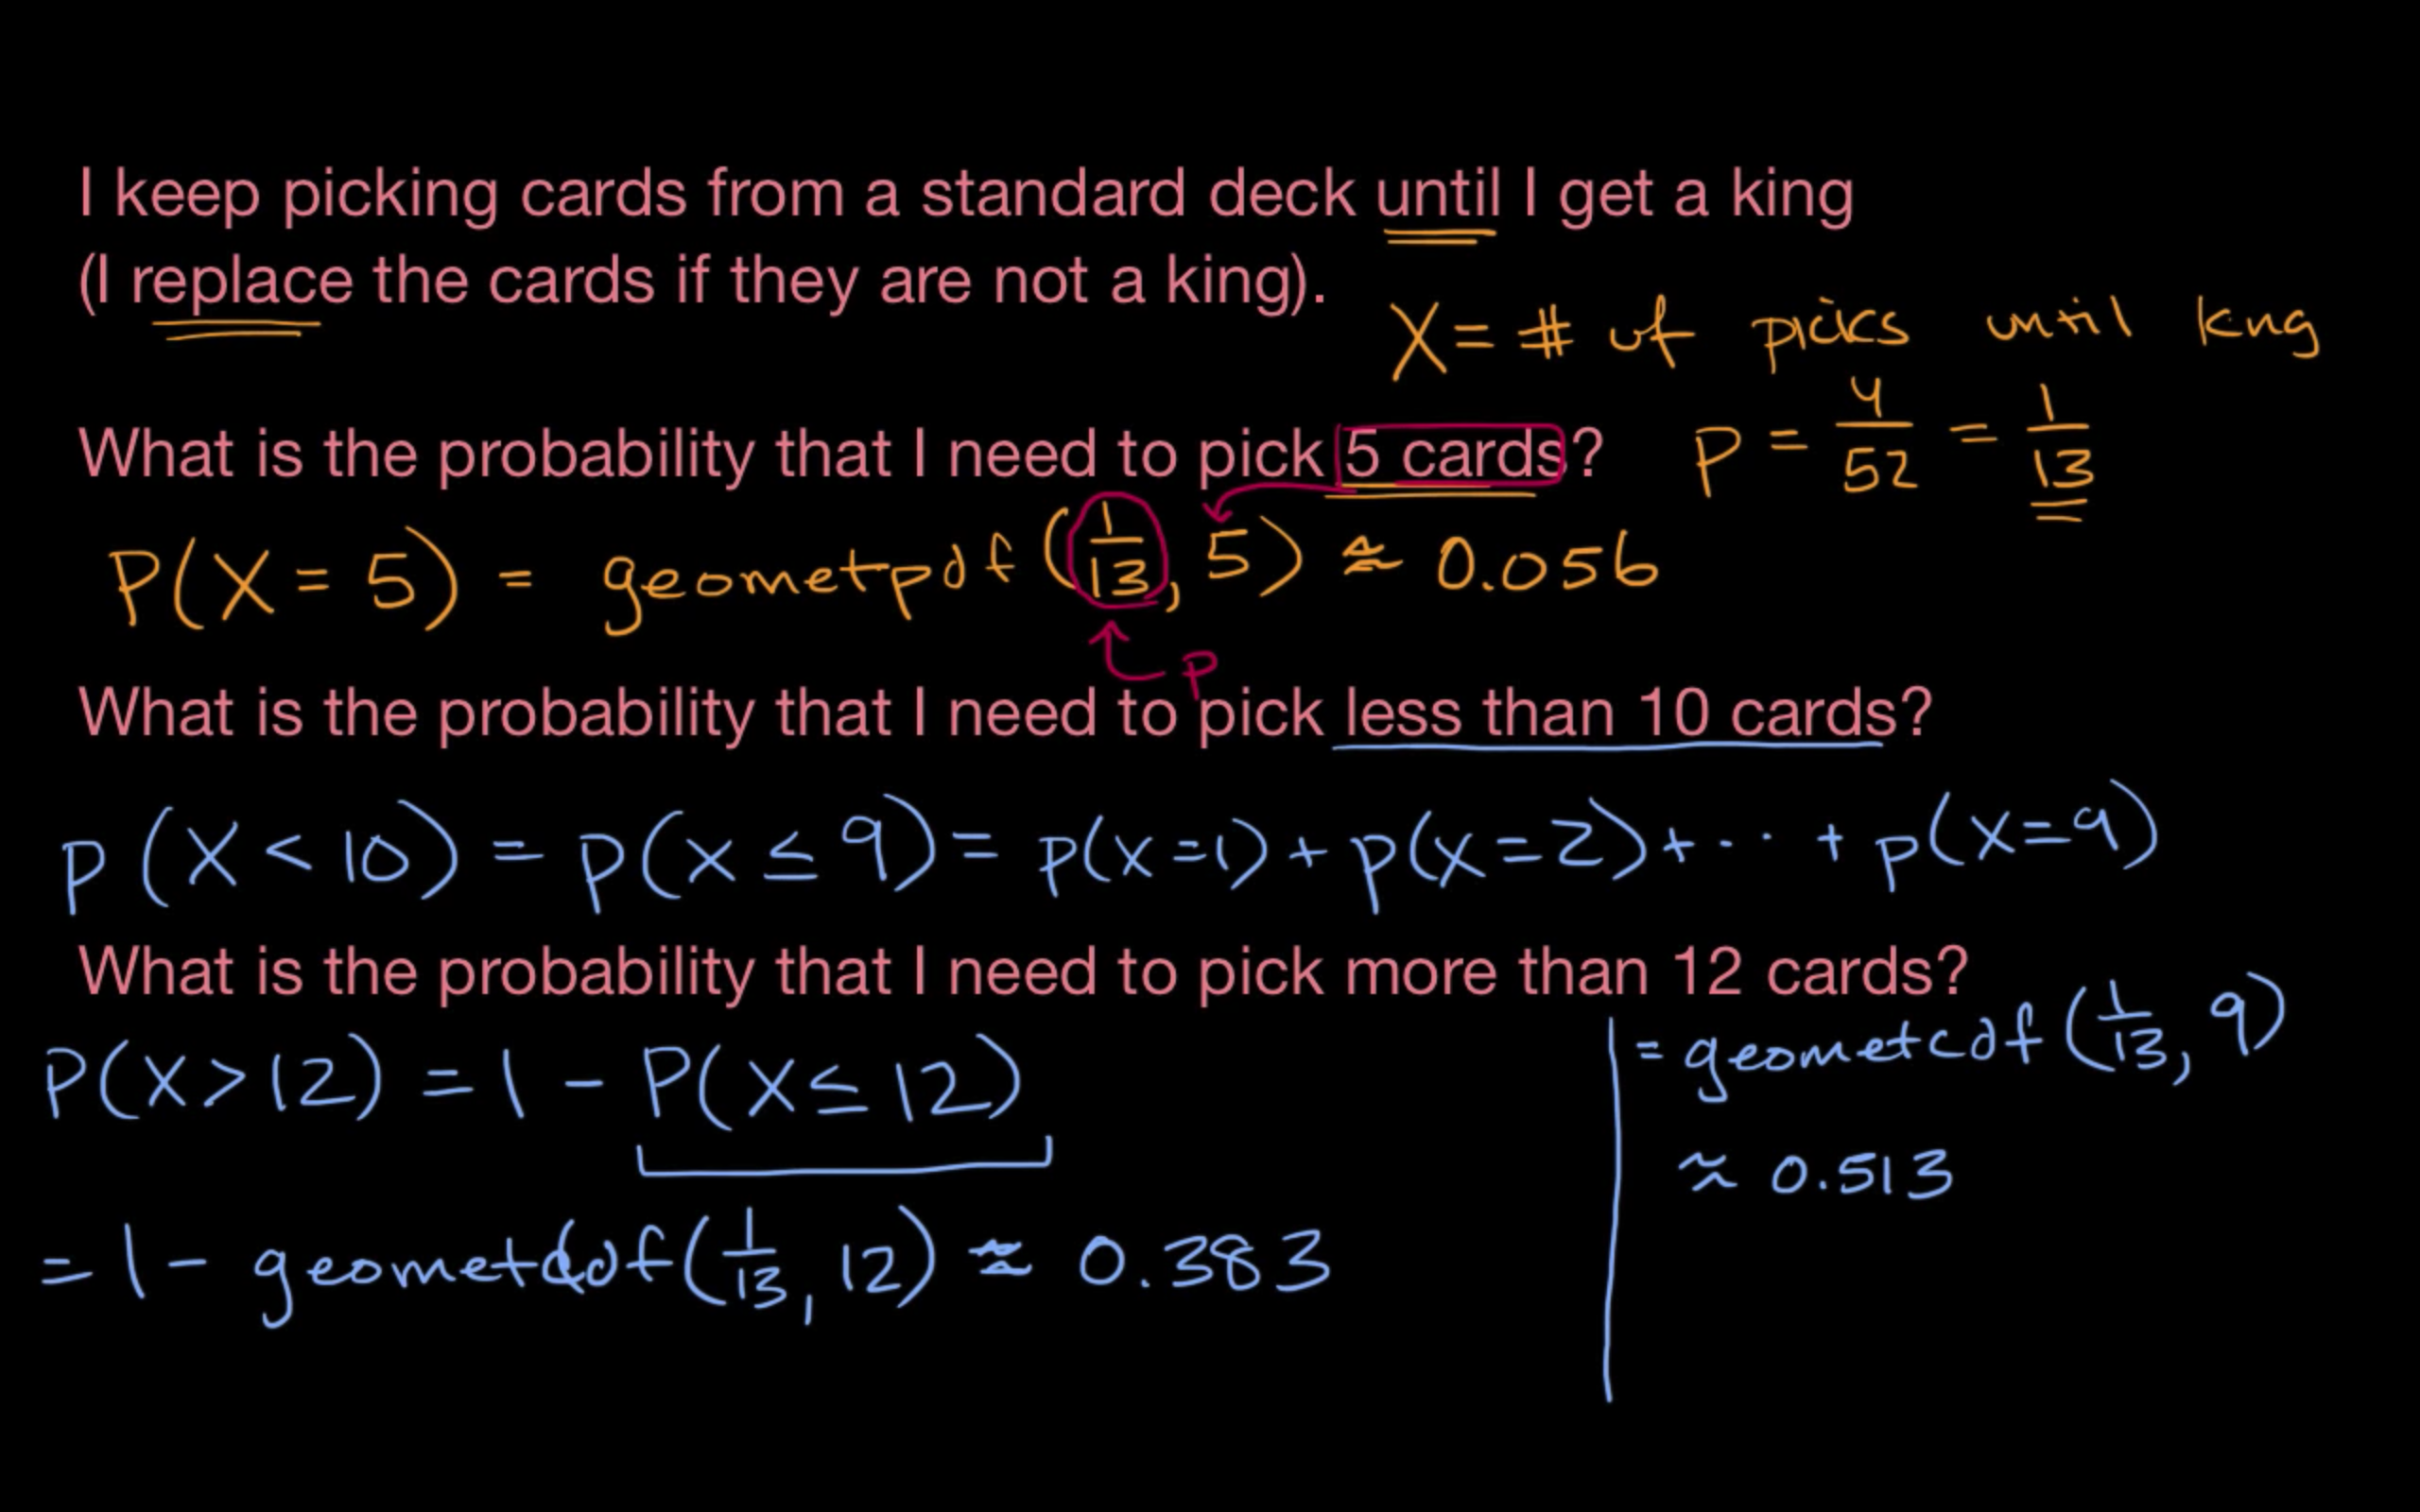 I keep picking cards from a standard deck until I get a king
(I replace the cards if they are not a king).
X = # of picks until king
What is the probability that I need to pick 5 cards?
p = 4/52 = 1/13
P(X = 5) = geometpdf(1/13, 5) ≈ 0.056
p
What is the probability that I need to pick less than 10 cards?
P(X < 10) = P(X ≤ 9) = P(X=1) + P(X=2) + ... + P(X=9)
What is the probability that I need to pick more than 12 cards?
= geometcdf(1/13, 9)
≈ 0.513
P(X > 12) = 1 - P(X ≤ 12)
= 1 - geometcdf(1/13, 12) ≈ 0.383